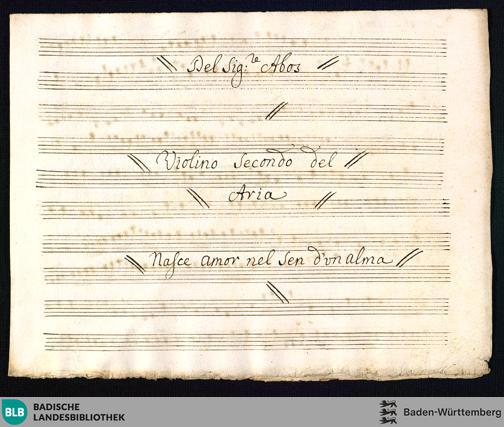 Del Sig:re Abos
Violino Secondo del
Aria
Nasce amor nel sen d'vn alma
BLB BADISCHE
LANDESBIBLIOTHEK
Baden-Württemberg